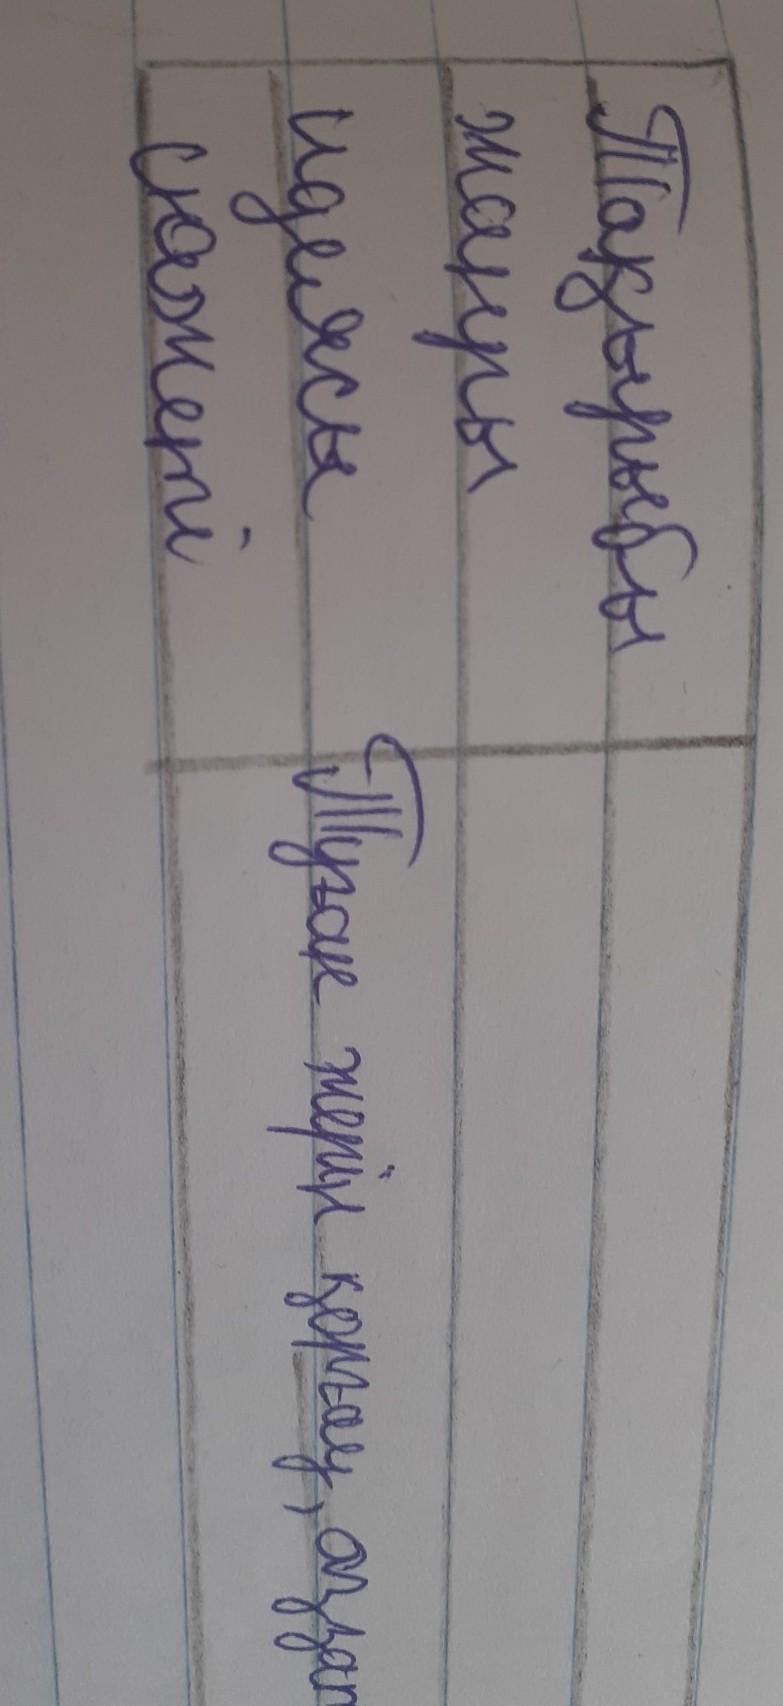 Тақырыбы
жанры
идеясы Туған жерін қорғау, азат
сюжеті